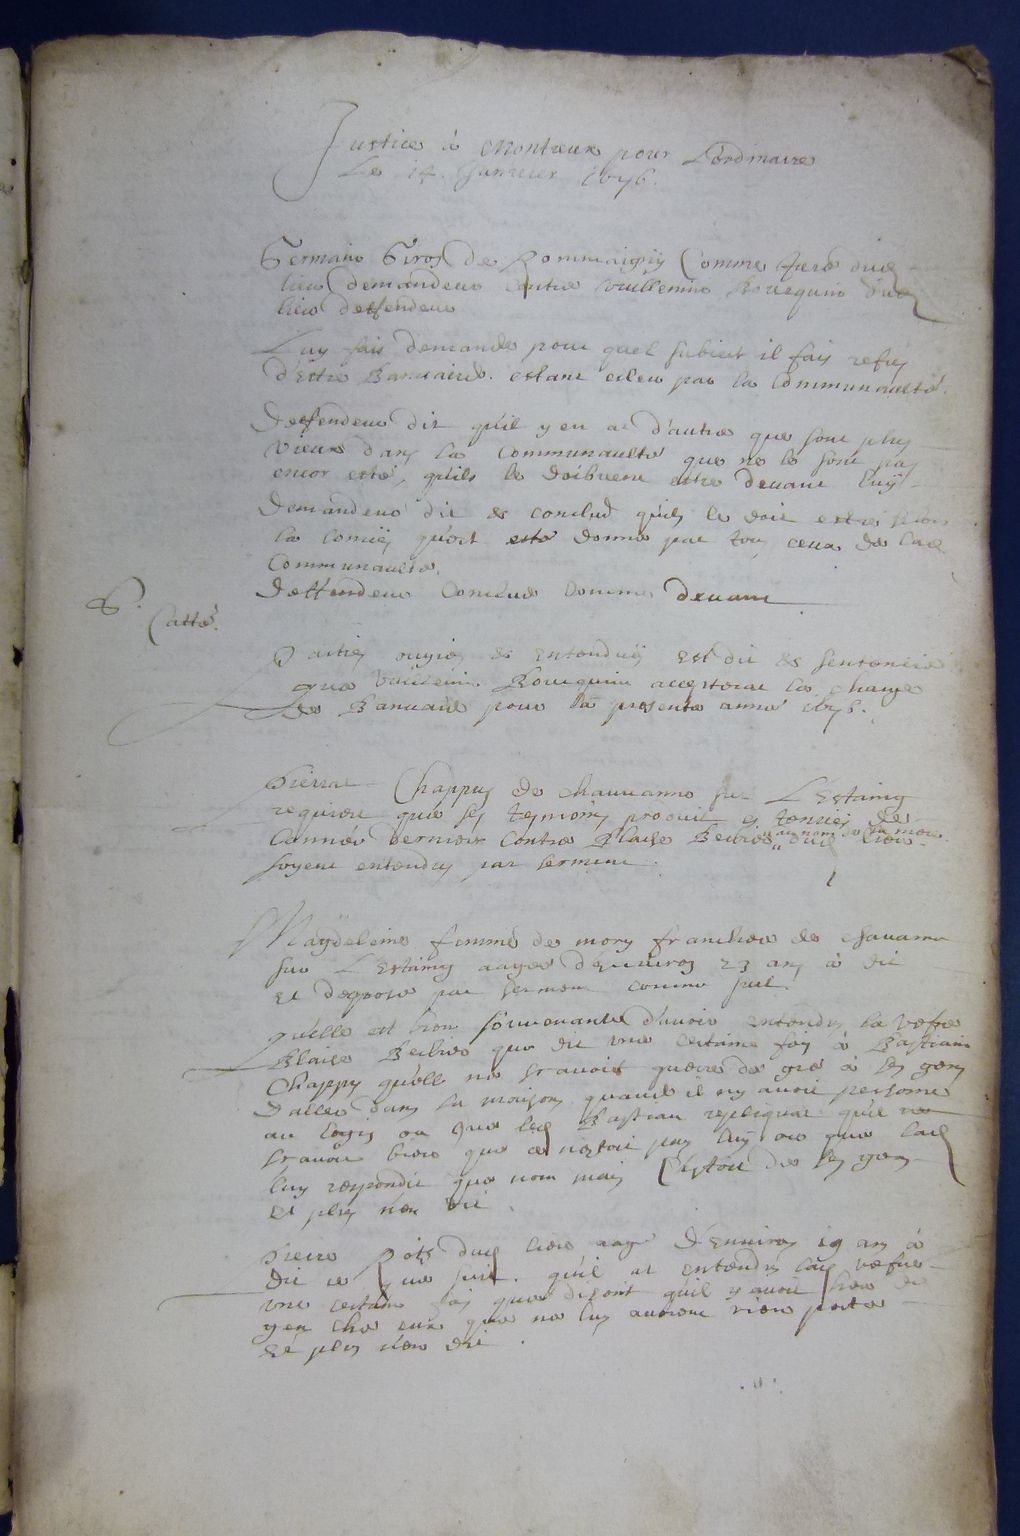 Justice à Montreux pour L'ordinaire
Le 14. Janvier 1676.
Germain Giros de Rommaigny Comme Juré dud
lieu demandeur contre Vuillemin Bourquin dud
lieu deffendeur
Luy fais demande pour quel subiect il fais refus
d'Estre Banuaird. estant esleu par la Communaulté.
Deffendeur dit qu'il y en at d'autre que sont plus
vieux dans la Communaulté que ne le sont pas
encor esté, qu'ils le doibuent estre deuant luÿ
Demandeur dit & conclud qu'il le doit estre selon
la qu'ont esté donné par tous ceux de lad
Communaulté.
Deffendeur Conclud comme deuant
S.
Cattè.
Parties ouyes & Entenduÿ Est dit & sentencié
que Vuillemin Bourquin accepterat la charge
de Banuaird pour la presente anné 1676.
Pierrat Chappuis de chauuanne sur L'Estaing
requiere que ses tesmoins produit es tenues de
l'année derniere contre Blaise Beibier au nom de sa mere dud lieu
soyent entendus par serment.
Magdeleine femme de mory franchier de chauanne
sur L'Estaing aagée d'Enuiron 23 ans à dit
et deposé par serment comme suit.
qu'elle est bien souuenante d'auoir entendus la vefue
Blaise Beibier que dit une certaine foy à Bastiain
Chappuis qu'ell ne scauoit guerre de gré à ses gens
d'aller dans sa maison quand il ny auoit personne
au logis ou que led Bastian repliquat qu'il ne
scauoit bien que ce n'estoit pas luÿ ou que lad
luy respondit que non mais C'estoit de ses gens
et plus n'en dit.
Pierre dud lieu aagé d'Enuiron 19 ans à
dit ce que suit. qu'il at entendus lad vefue
une certaine foy que disoit qu'il y auoit bien de
gen ché eux que ne luy auoient rien porté
Et plus n'en dit.